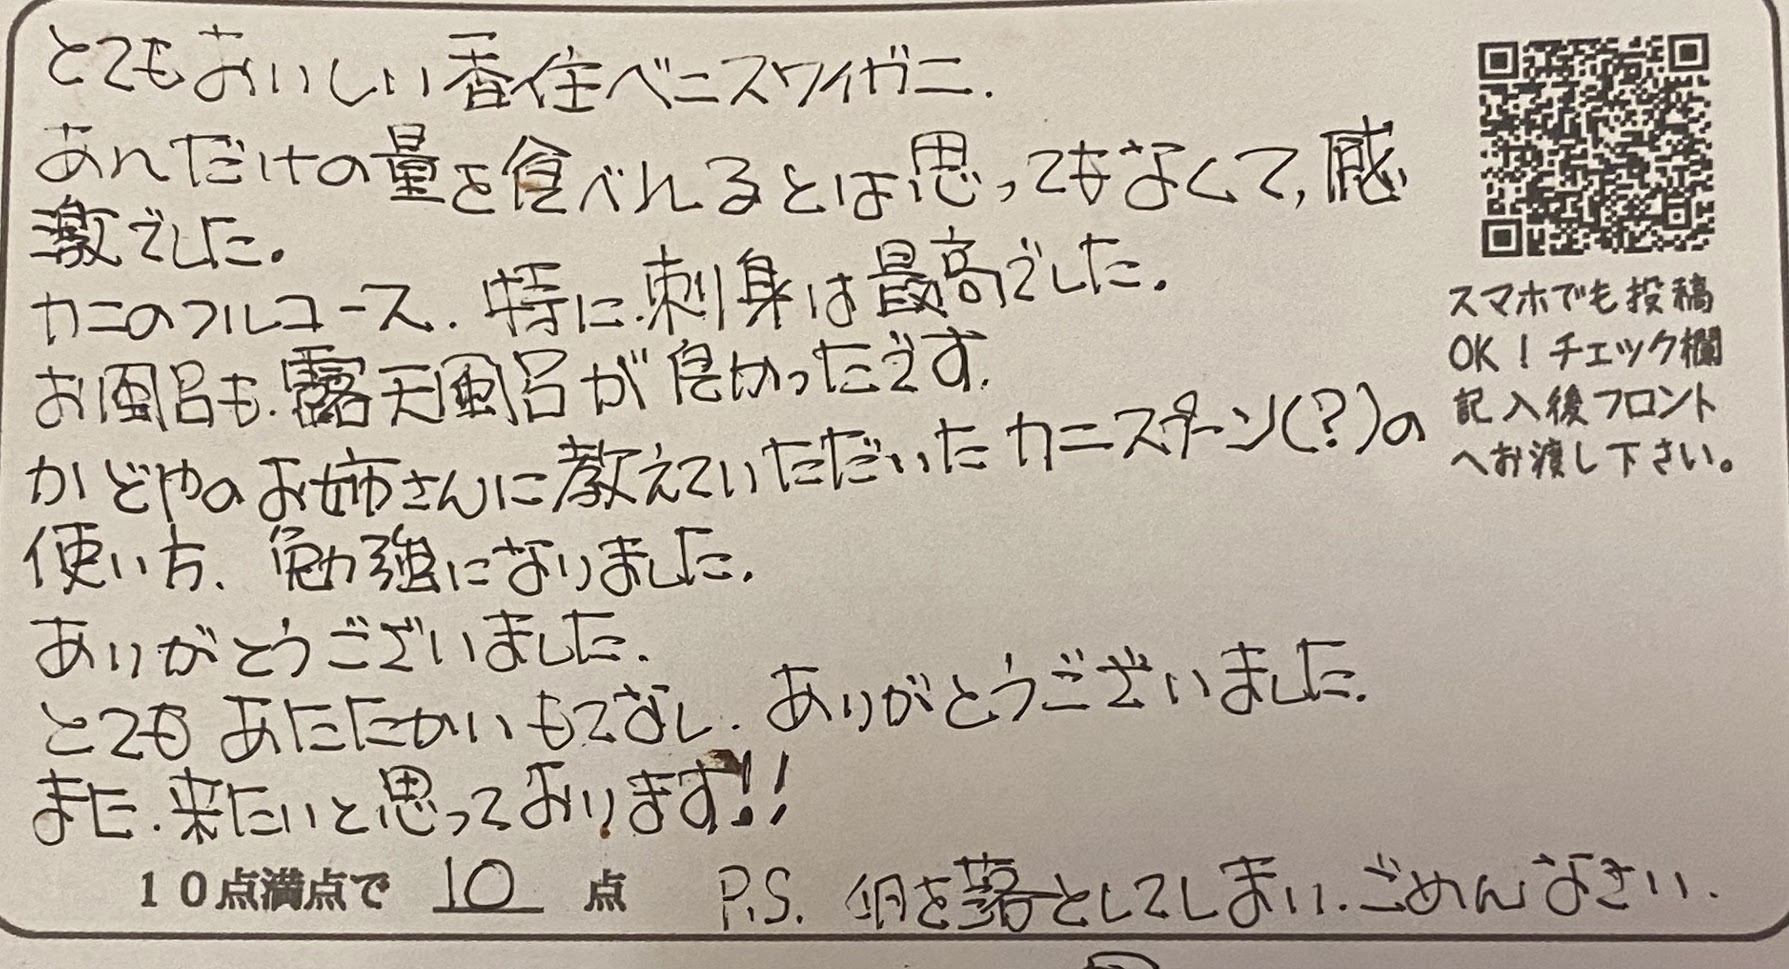 とてもおいしい香住ベニズワイガニ.
あれだけの量を食べれるとは思ってもなくて,感
激でした。
カニのフルコース.特に.刺身は最高でした。
お風呂も.露天風呂が良かったです.
かどやのお姉さんに教えていただいたカニスプーン(?)の
使い方、勉強になりました.
ありがとうございました.
とてもあたたかいもてなし.ありがとうございました.
また.来たいと思っております!!
10点満点で 10 点
P.S. 卵を落としてしまい.ごめんなさい.
スマホでも投稿
OK!チェック欄
記入後フロント
へお渡し下さい。